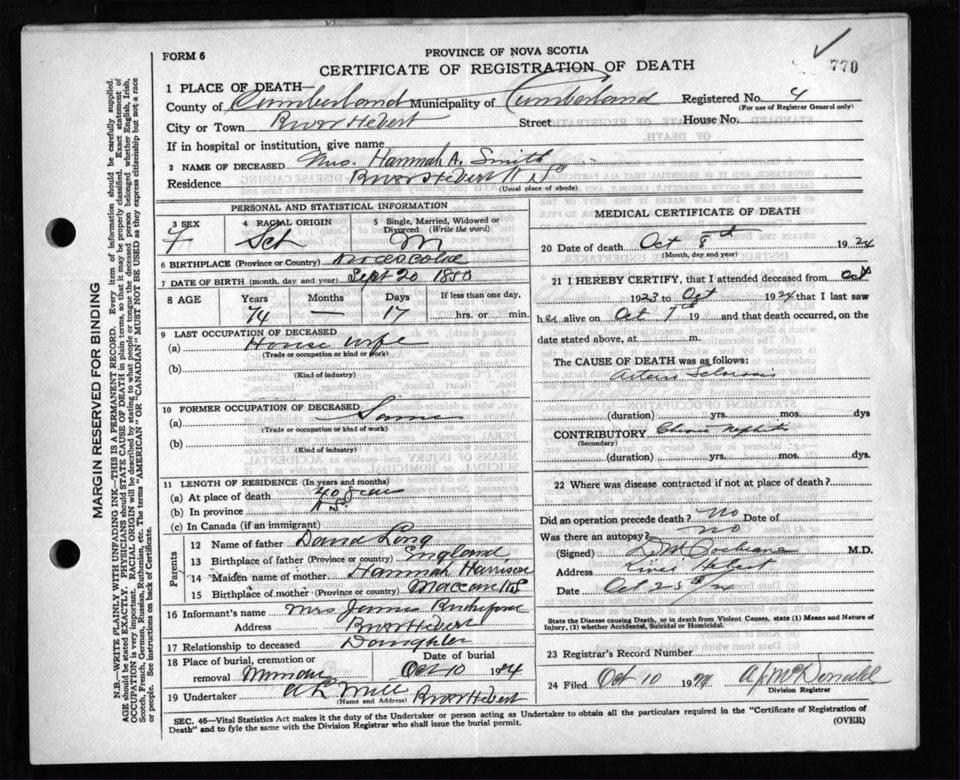 FORM 6
PROVINCE OF NOVA SCOTIA
770
CERTIFICATE OF REGISTRATION OF DEATH
1 PLACE OF DEATH—
County of Cumberland Municipality of Cumberland Registered No. 4
(For use of Registrar General only)
City or Town River Hebert Street House No.
If in hospital or institution, give name
2 NAME OF DECEASED Mrs. Hannah A. Smith
Residence River Hebert N S
(Usual place of abode)
PERSONAL AND STATISTICAL INFORMATION
3 SEX 4 RACIAL ORIGIN 5 Single, Married, Widowed or Divorced (Write the word)
F Sct M
6 BIRTHPLACE (Province or Country)
7 DATE OF BIRTH (month, day, and year) Sept 20 1850
8 AGE Years Months Days If less than one day,
74 — 17 hrs. or min.
9 LAST OCCUPATION OF DECEASED
(a) House wife
(Trade or occupation or kind or work)
(b)
(Kind of industry)
10 FORMER OCCUPATION OF DECEASED
(a) Same
(Trade or occupation or kind of work)
(b)
(Kind of industry)
11 LENGTH OF RESIDENCE (In years and months)
(a) At place of death 40 years
(b) In province N S.
(c) In Canada (if an immigrant)
Parents
12 Name of father David Long
13 Birthplace of father (Province or country) England
14 Maiden name of mother Hannah Harrison
15 Birthplace of mother (Province or country) Maccan N S
16 Informant's name Mrs James Rutherford
Address River Hebert
17 Relationship to deceased Daughter
18 Place of burial, cremation or removal Minudie Date of burial Oct 10 1924
19 Undertaker River Hebert
(Name and Address)
MEDICAL CERTIFICATE OF DEATH
20 Date of death Oct 8th 1924
(Month, day and year)
21 I HEREBY CERTIFY, that I attended deceased from Oct
1923 to Oct 1924 that I last saw
her alive on Oct 7th 19 and that death occurred, on
date stated above, at m.
The CAUSE OF DEATH was as follows:
Arterio Sclerosis
(duration) yrs. mos. dys
CONTRIBUTORY Chronic Nephritis
(Secondary)
(duration) yrs. mos. dys.
22 Where was disease contracted if not at place of death?
Did an operation precede death? No Date of
Was there an autopsy? No
(Signed) Cochrane M.D.
Address River Hebert
Date Oct
State the Disease causing Death, or in death from Violent Causes, state (1) Means and Nature of Injury, (2) whether Accidental, Suicidal or Homicidal.
23 Registrar's Record Number
24 Filed Oct 10 1924 McDonald
Division Registrar
SEC. 46—Vital Statistics Act makes it the duty of the Undertaker or person acting as Undertaker to obtain all the particulars required in the "Certificate of Registration of
Death" and to fyle the same with the Division Registrar who shall issue the burial permit. (OVER)
MARGIN RESERVED FOR BINDING
N.B.—WRITE PLAINLY WITH UNFADING INK—THIS IS A PERMANENT RECORD. Every item of information should be carefully supplied.
AGE should be stated EXACTLY. PHYSICIANS should STATE CAUSE OF DEATH in plain terms, so that it may be properly classified. Exact statement of
OCCUPATION is very important. RACIAL ORIGIN will be described by stating to what people or tongue the deceased person belonged, whether English, Irish,
Scotch, French, German, Russian, Ruthenian, etc. The terms "AMERICAN" OR "CANADIAN" MUST NOT BE USED as they express citizenship but not a race
or people. See instructions on back of Certificate.